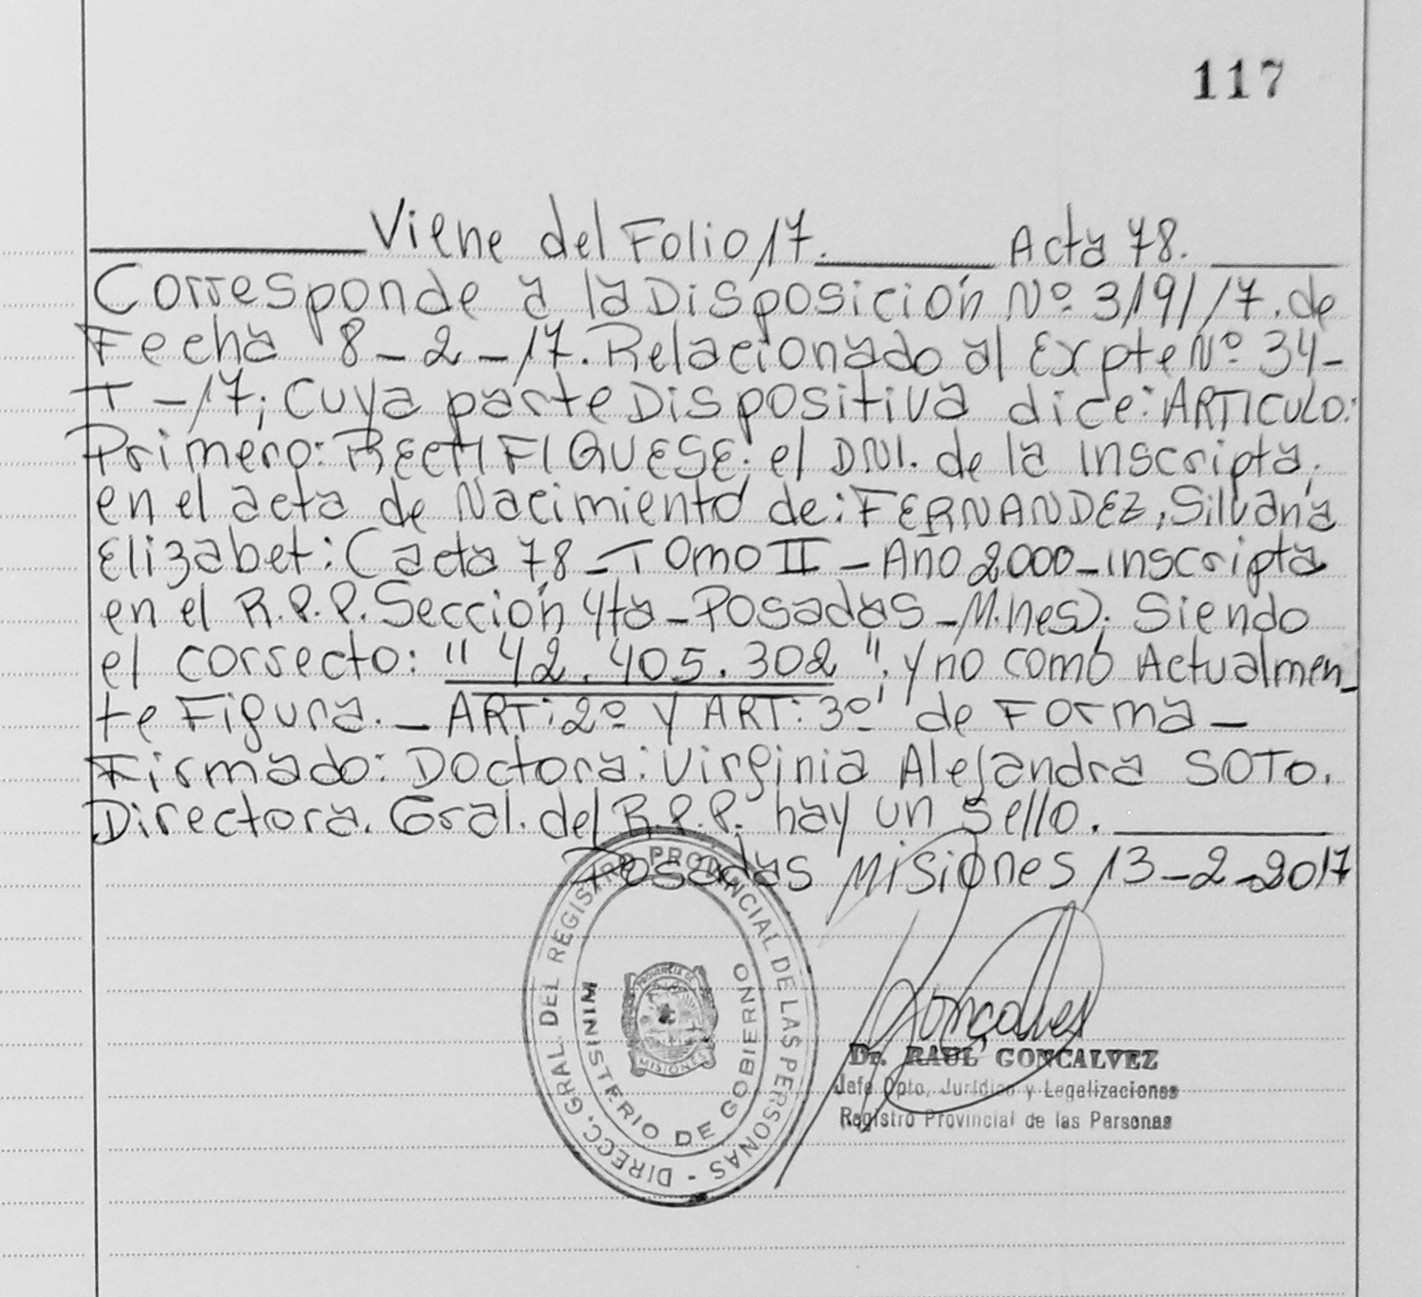 117
Viene del Folio 17. Acta 78.
Corresponde a la Disposición Nº 319/17. de
Fecha 8-2-17. Relacionado al Expte Nº 34-
I-17; Cuya parte Dispositiva dice: ARTICULO:
Primero: RECTIFIQUESE: el DNI. de la inscripta,
en el acta de Nacimiento de: FERNANDEZ, Silvana
Elizabet: (acta 78-Tomo II-Año 2000-inscripta
en el R.P.P. Sección 4ta-Posadas-M.nes); Siendo
el correcto: "42.405.302", y no como Actualmen_
te Figura._ ART: 2º Y ART: 3º de Forma-
Firmado: Doctora: Virginia Alejandra SOTO.
Directora. Gral. del R.P.P. hay un sello.
Posadas Misiones 13-2-2017
DIRECC. GRAL. DEL REGISTRO PROVINCIAL DE LAS PERSONAS -
MINISTERIO DE GOBIERNO
PROVINCIA DE
MISIONES
Goncalves
Dr. RAUL GONCALVEZ
Jefe Dpto. Jurídico y Legalizaciones
Registro Provincial de las Personas